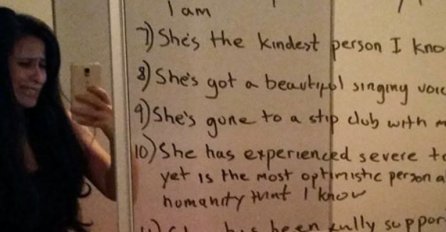 I am
7) She's the kindest person I kno
8) She's got a beautiful singing voic
9) She's gone to a stip club with m
10) She has experienced severe t
yet is the most optimistic person a
humanity that I know
has been fully suppor